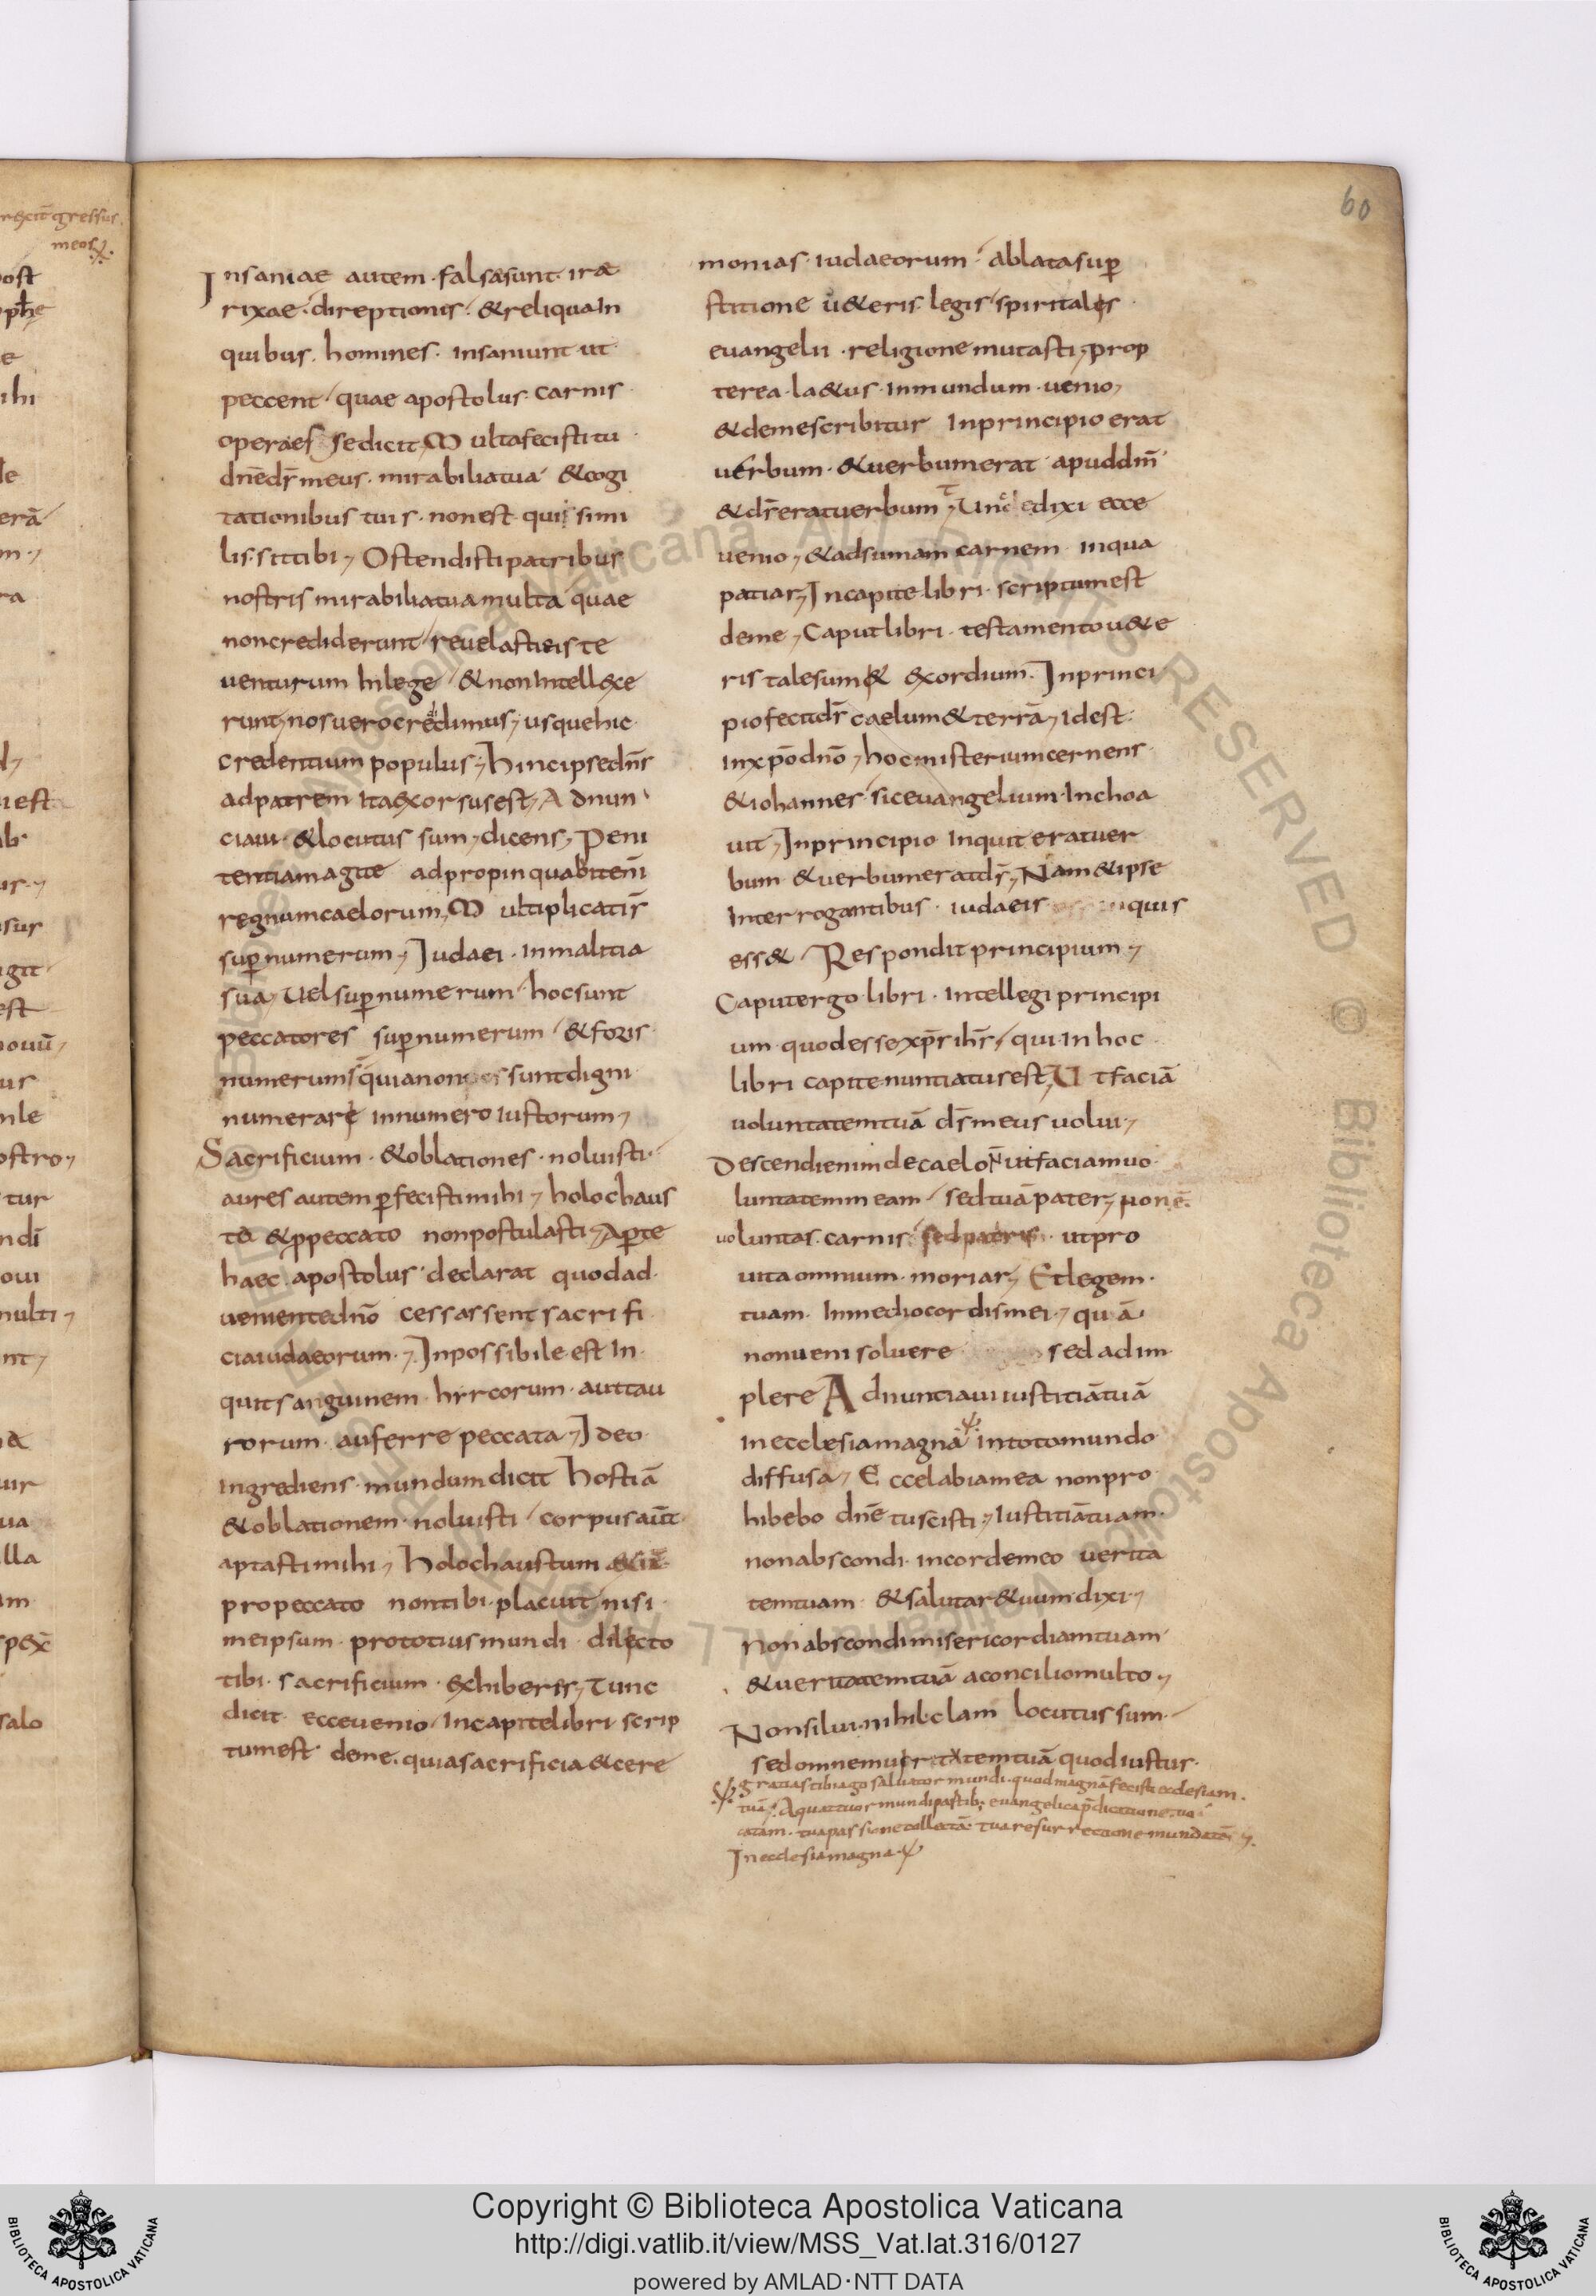 60
Insaniae autem falsa sunt ira
rixae direptionis & reliqua In
quibus homines insaniunt ut
peccent quae apostolus carnis
opera es se dicit Multa fecisti tu
dn̄e ds̄ meus mirabilia tua & cogi
tationibus tuis non est qui simi
lis sit tibi Ostendisti patribus
nostris mirabilia tua multa quae
non crediderunt revelasti eis te
venturum In lege & non Intell&xe
runt nos vero credimus usque hic
credentium populus Hinc ipse dn̄s
ad patrem Ita &xorsus est Adnun
ciavi & locutus sum dicens Peni
tentiam agite adpropinquabit enī
regnum caelorum Multiplicati s̄
sup̱ numerum Iudaei In malitia
sua vel sup̱ numerum hoc sunt
peccatores sup̱ numerum & foris
numerum s̄ quia non sunt digni
numerare in numero iustorum
Sacrificium & oblationes noluisti
aures autem p̱fecisti mihi holochaus
ta & p̱ peccato non postulasti Ap̱te
haec apostolus declarat quod ad
veniente dn̄o cessassent sacrifi
cia iudaeorum Inpossibile est In
quit sanguinem hircorum aut tau
rorum auferre peccata Ideo
Ingrediens mundum dicit Hostiā
& oblationem noluisti corpus aūt
aptasti mihi Holochaustum
pro peccato non tibi placuit nisi
me ipsum pro totius mundi dilecto
tibi sacrificium &xhiberes Tunc
dicit ecce venio In capite libri scrip
tum est de me quia sacrificia & cere
monias iudaeorum ablata sup̱
stitione u&eris legis spiritales
evangelii religione mutasti prop
terea la&us In mundum venio
& de me scribitur In principio erat
verbum & verbum erat apud dm̄
& ds̄ erat verbum Unde dixi ecce
venio & adsumam carnem in qua
patiar In capite libri scriptum est
de me Caput libri testamento u&e
ris tale sum & &xordium In princi
pio fecit ds̄ caelum & terrā Id est
in xp̄o dn̄o hoc misterium cernens
& iohannes sic evangelium Inchoa
vit In principio Inquit erat ver
bum & verbum erat ds̄ Nam & ipse
Interrogantibus iudaeis quis
ess& Respondit principium
Caput ergo libri Intellegi principi
um quod esse xp̄s ihs̄ qui In hoc
libri capite nuntiatus est Ut faciā
voluntatem tuā ds̄ meus volui
Descendi enim de caelo N̄ ut faciam vo
luntatem meam sed tuā pater non ē
voluntas carnis sed patris ut pro
vita omnium moriar Et legem
tuam In medio cordis mei quā
non veni solvere sed adim
plere Adnuntiavi iustitiā tuā
in ecclesia magna in toto mundo
diffusa Ecce labia mea non pro
hibebo dn̄e tu scisti Iustitiā tuam
non abscondi in corde meo verita
tem tuam & salutar& uum dixi
Non abscondi misericordiam tuam
& veritatem tuā a concilio multo
Non silui nihil clam locutus sum
sed omnem veritatem tuā quod iustus
gratias tibi ago salvator mundi quod magnā fecisti ecclesiam
tuā A quattuor mundi partib; evangelica p̄dicatione vo
catam tua passione collectā tua resurrectione mundatā
In ecclesia magna
Copyright © Biblioteca Apostolica Vaticana
http://digi.vatlib.it/view/MSS_Vat.lat.316/0127
powered by AMLAD·NTT DATA